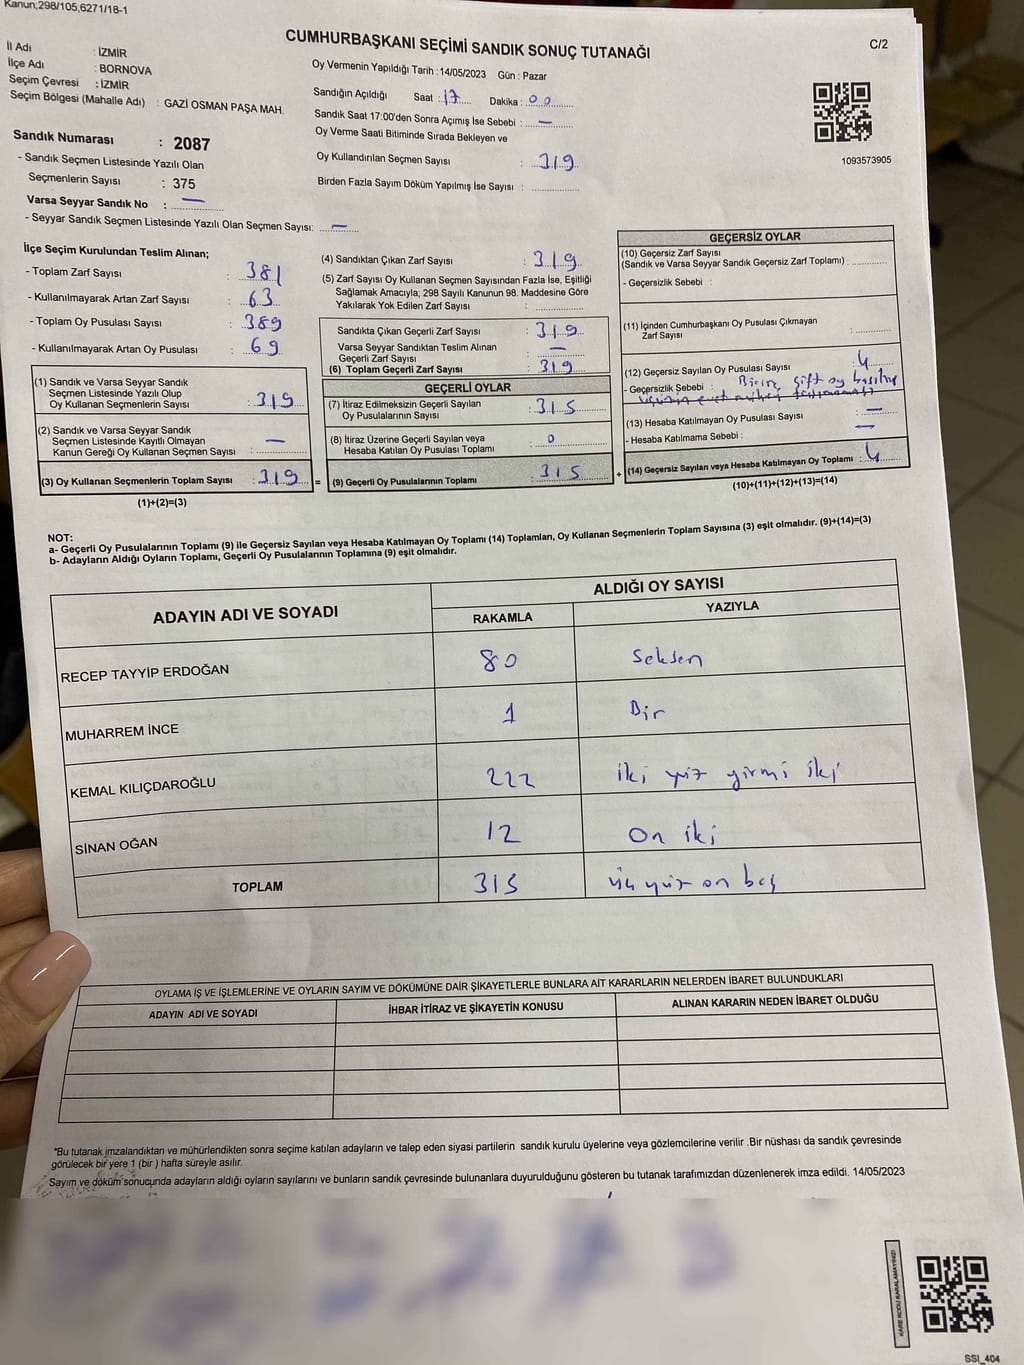 Kanun;298/105,6271/18-1
CUMHURBAŞKANI SEÇİMİ SANDIK SONUÇ TUTANAĞI
C/2
İl Adı : İZMİR
İlçe Adı : BORNOVA
Seçim Çevresi : İZMİR
Seçim Bölgesi (Mahalle Adı) : GAZİ OSMAN PAŞA MAH.
Sandık Numarası : 2087
- Sandık Seçmen Listesinde Yazılı Olan
Seçmenlerin Sayısı : 375
Varsa Seyyar Sandık No : —
- Seyyar Sandık Seçmen Listesinde Yazılı Olan Seçmen Sayısı: —
Oy Vermenin Yapıldığı Tarih : 14/05/2023 Gün : Pazar
Sandığın Açıldığı Saat : 17 Dakika : 00
Sandık Saat 17:00'den Sonra Açımış İse Sebebi : —
Oy Verme Saati Bitiminde Sırada Bekleyen ve
Oy Kullandırılan Seçmen Sayısı : 319
Birden Fazla Sayım Döküm Yapılmış İse Sayısı :
1093573905
İlçe Seçim Kurulundan Teslim Alınan;
- Toplam Zarf Sayısı : 381
- Kullanılmayarak Artan Zarf Sayısı : 63
- Toplam Oy Pusulası Sayısı : 389
- Kullanılmayarak Artan Oy Pusulası : 69
(1) Sandık ve Varsa Seyyar Sandık
Seçmen Listesinde Yazılı Olup
Oy Kullanan Seçmenlerin Sayısı : 319
(2) Sandık ve Varsa Seyyar Sandık
Seçmen Listesinde Kayıtlı Olmayan
Kanun Gereği Oy Kullanan Seçmen Sayısı : —
(3) Oy Kullanan Seçmenlerin Toplam Sayısı : 319 =
(1)+(2)=(3)
(4) Sandıktan Çıkan Zarf Sayısı : 319
(5) Zarf Sayısı Oy Kullanan Seçmen Sayısından Fazla İse, Eşitliği
Sağlamak Amacıyla; 298 Sayılı Kanunun 98. Maddesine Göre
Yakılarak Yok Edilen Zarf Sayısı :
Sandıkta Çıkan Geçerli Zarf Sayısı : 319
Varsa Seyyar Sandıktan Teslim Alınan
Geçerli Zarf Sayısı : —
(6) Toplam Geçerli Zarf Sayısı : 319
GEÇERLİ OYLAR
(7) İtiraz Edilmeksizin Geçerli Sayılan
Oy Pusulalarının Sayısı : 315
(8) İtiraz Üzerine Geçerli Sayılan veya
Hesaba Katılan Oy Pusulası Toplamı : 0
(9) Geçerli Oy Pusulalarının Toplamı : 315 +
GEÇERSİZ OYLAR
(10) Geçersiz Zarf Sayısı
(Sandık ve Varsa Seyyar Sandık Geçersiz Zarf Toplamı) :
- Geçersizlik Sebebi :
(11) İçinden Cumhurbaşkanı Oy Pusulası Çıkmayan
Zarf Sayısı :
(12) Geçersiz Sayılan Oy Pusulası Sayısı : 4
- Geçersizlik Sebebi : Birine çift oy basılmış
(13) Hesaba Katılmayan Oy Pusulası Sayısı : —
- Hesaba Katılmama Sebebi : —
(14) Geçersiz Sayılan veya Hesaba Katılmayan Oy Toplamı : 4
(10)+(11)+(12)+(13)=(14)
NOT:
a- Geçerli Oy Pusulalarının Toplamı (9) ile Geçersiz Sayılan veya Hesaba Katılmayan Oy Toplamı (14) Toplamları, Oy Kullanan Seçmenlerin Toplam Sayısına (3) eşit olmalıdır. (9)+(14)=(3)
b- Adayların Aldığı Oyların Toplamı, Geçerli Oy Pusulalarının Toplamına (9) eşit olmalıdır.
ADAYIN ADI VE SOYADI ALDIĞI OY SAYISI
RAKAMLA YAZIYLA
RECEP TAYYİP ERDOĞAN 80 Seksen
MUHARREM İNCE 1 Bir
KEMAL KILIÇDAROĞLU 222 iki yüz yirmi iki
SİNAN OĞAN 12 On iki
TOPLAM 315 üç yüz on beş
OYLAMA İŞ VE İŞLEMLERİNE VE OYLARIN SAYIM VE DÖKÜMÜNE DAİR ŞİKAYETLERLE BUNLARA AİT KARARLARIN NELERDEN İBARET BULUNDUKLARI
ADAYIN ADI VE SOYADI İHBAR İTİRAZ VE ŞİKAYETİN KONUSU ALINAN KARARIN NEDEN İBARET OLDUĞU
*Bu tutanak imzalandıktan ve mühürlendikten sonra seçime katılan adayların ve talep eden siyasi partilerin sandık kurulu üyelerine veya gözlemcilerine verilir .Bir nüshası da sandık çevresinde
görülecek bir yere 1 (bir ) hafta süreyle asılır.
Sayım ve döküm sonucunda adayların aldığı oyların sayılarını ve bunların sandık çevresinde bulunanlara duyurulduğunu gösteren bu tutanak tarafımızdan düzenlenerek imza edildi. 14/05/2023
KARE KODU KARALAMAYINIZ!
SSI_404